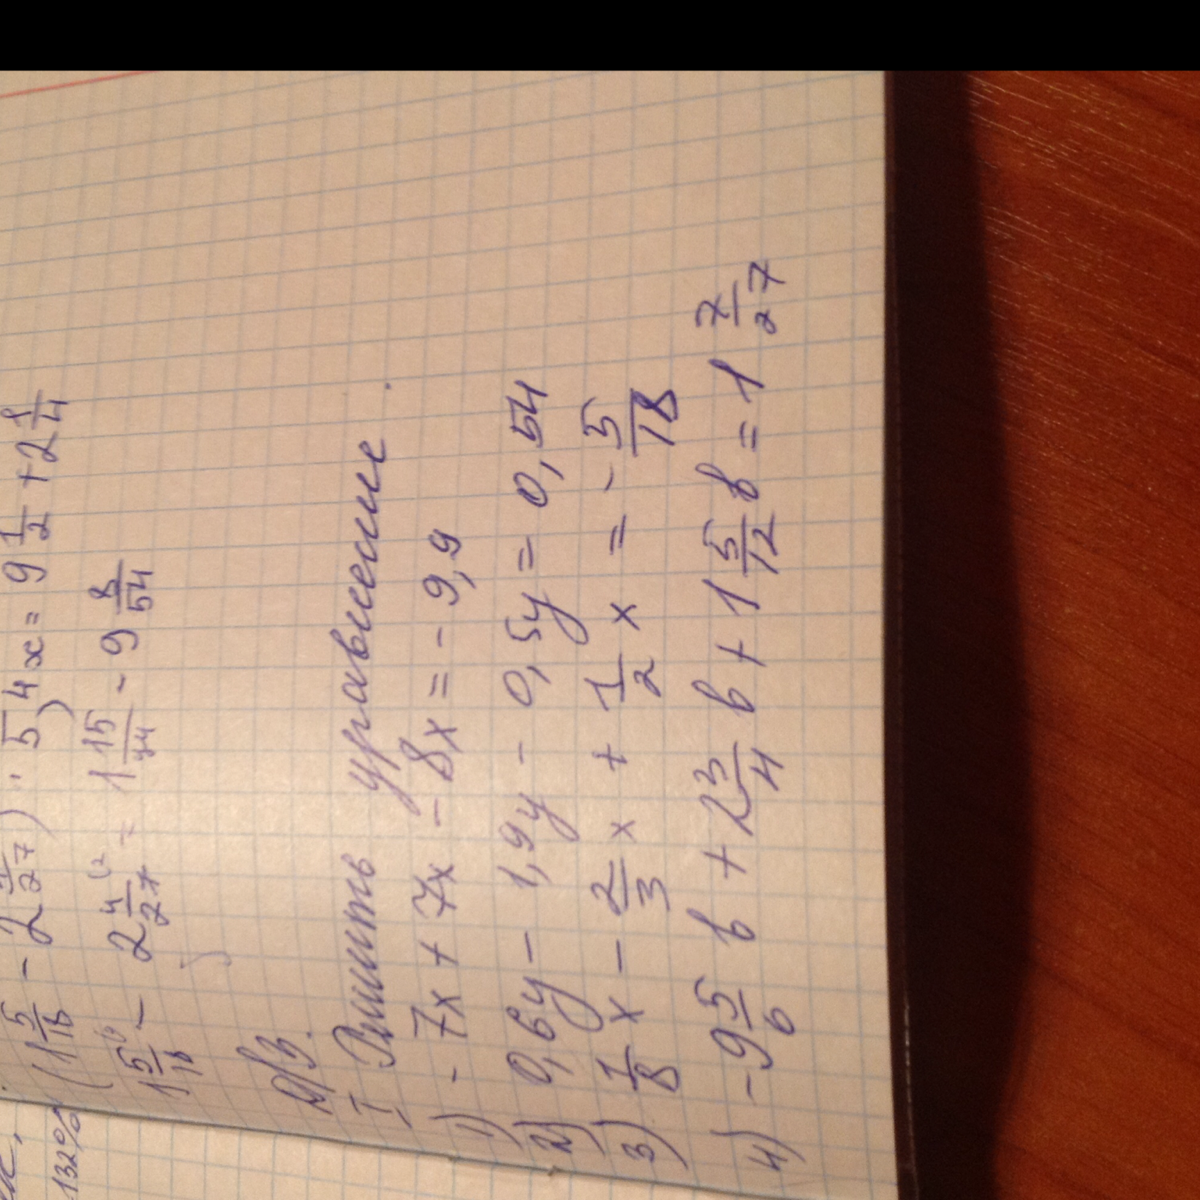 (1 5/18 - 2 /27) : 5,4x = 9 1/2 + 2 1/4
1 5/18 - 2 4/27 = 1 15/54 - 9 8/54
Д/З.
I. Решить уравнение.
1) - 7x + 7x - 8x = - 9,9
2) 0,6y - 1,9y - 0,5y = 0,54
3) 1/8 x - 2/3 x + 1/2 x = - 5/18
4) - 9 5/6 b + 2 3/4 b + 1 5/12 b = 1 7/27
132%